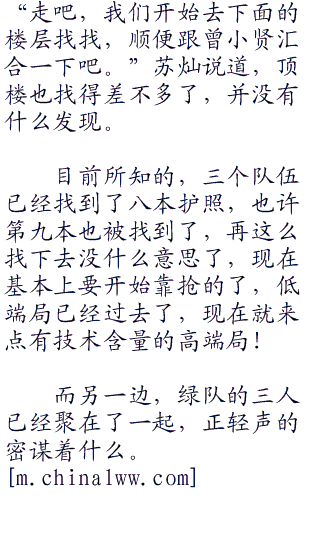 “走吧，我们开始去下面的
楼层找找，顺便跟曾小贤汇
合一下吧。”苏灿说道，顶
楼也找得差不多了，并没有
什么发现。
目前所知的，三个队伍
已经找到了八本护照，也许
第九本也被找到了，再这么
找下去没什么意思了，现在
基本上要开始靠抢的了，低
端局已经过去了，现在就来
点有技术含量的高端局！
而另一边，绿队的三人
已经聚在了一起，正轻声的
密谋着什么。
[m.china1ww.com]